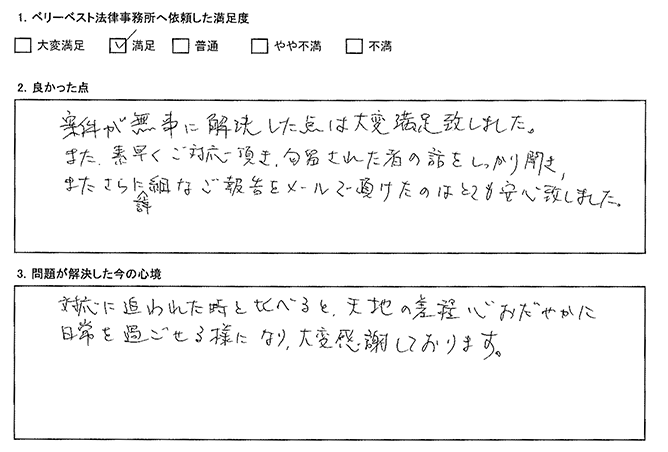 1. ベリーベスト法律事務所へ依頼した満足度
大変満足 満足 普通 やや不満 不満
2. 良かった点
案件が無事に解決した点は大変満足致しました。
また、素早くご対応頂き、勾留された者の話をしっかり聞き、
またさらに詳細なご報告をメールで頂けたのはとても安心致しました。
3. 問題が解決した今の心境
対応に追われた時と比べると、天地の差程心おだやかに
日常を過ごせる様になり、大変感謝しております。